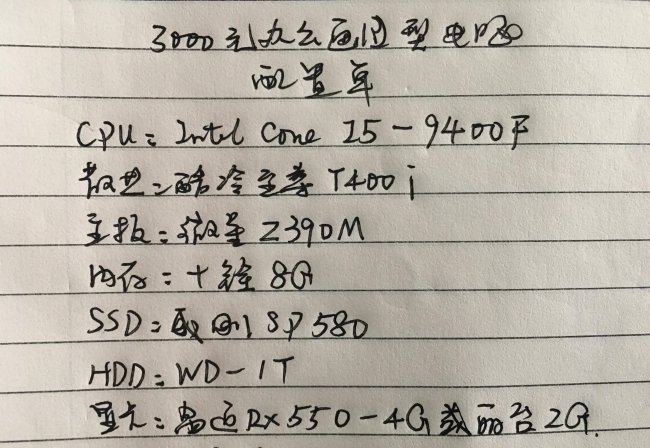 3000元办公通用型电脑
配置单
CPU:Intel Core I5-9400F
散热:酷冷至尊T400i
主板:微星Z390M
内存:十铨8G
SSD: SP580
HDD:WD-1T
显卡: RX550-4G或丽台2G.